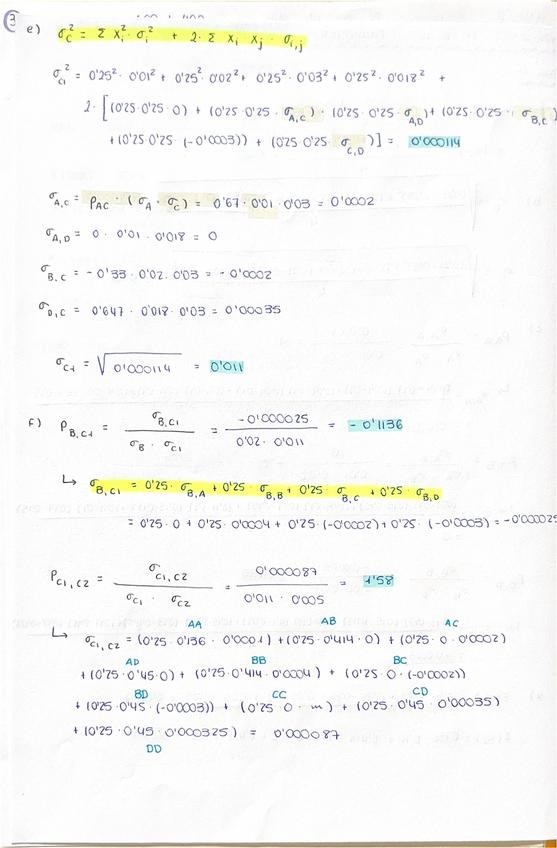 3
e) σc² = Σ Xi² · σi² + 2 · Σ Xi Xj · σi,j
σc1² = 0'25² · 0'01² + 0'25² · 0'02² + 0'25² · 0'03² + 0'25² · 0'018² +
2 · [(0'25 · 0'25 · 0) + (0'25 · 0'25 · σA,C) · (0'25 · 0'25 · σA,D) + (0'25 · 0'25 · σB,C)
+ (0'25 · 0'25 · (-0'0003)) + (0'25 · 0'25 · σC,D)] = 0'000114
σA,C = ρAC · (σA · σC) = 0'67 · 0'01 · 0'03 = 0'0002
σA,D = 0 · 0'01 · 0'018 = 0
σB,C = - 0'33 · 0'02 · 0'03 = - 0'0002
σD,C = 0'647 · 0'018 · 0'03 = 0'00035
σC1 = √0'000114 = 0'011
f) ρB,C1 = σB,C1 / σB · σC1 = -0'000025 / 0'02 · 0'011 = - 0'1136
↳ σB,C1 = 0'25 · σB,A + 0'25 · σB,B + 0'25 · σB,C + 0'25 · σB,D
= 0'25 · 0 + 0'25 · 0'0004 + 0'25 · (-0'0002) + 0'25 · (-0'0003) = -0'000025
ρC1,C2 = σC1,C2 / σC1 · σC2 = 0'000087 / 0'011 · 0'005 = 1'58
AA AB AC
↳ σC1,C2 = (0'25 · 0'136 · 0'0001) + (0'25 · 0'414 · 0) + (0'25 · 0 · 0'0002)
AD BB BC
+ (0'25 · 0'45 · 0) + (0'25 · 0'414 · 0'0004) + (0'25 · 0 · (-0'0002))
BD CC CD
+ (0'25 · 0'45 · (-0'0003)) + (0'25 · 0 · m) + (0'25 · 0'45 · 0'00035)
+ (0'25 · 0'45 · 0'000325) = 0'000087
DD